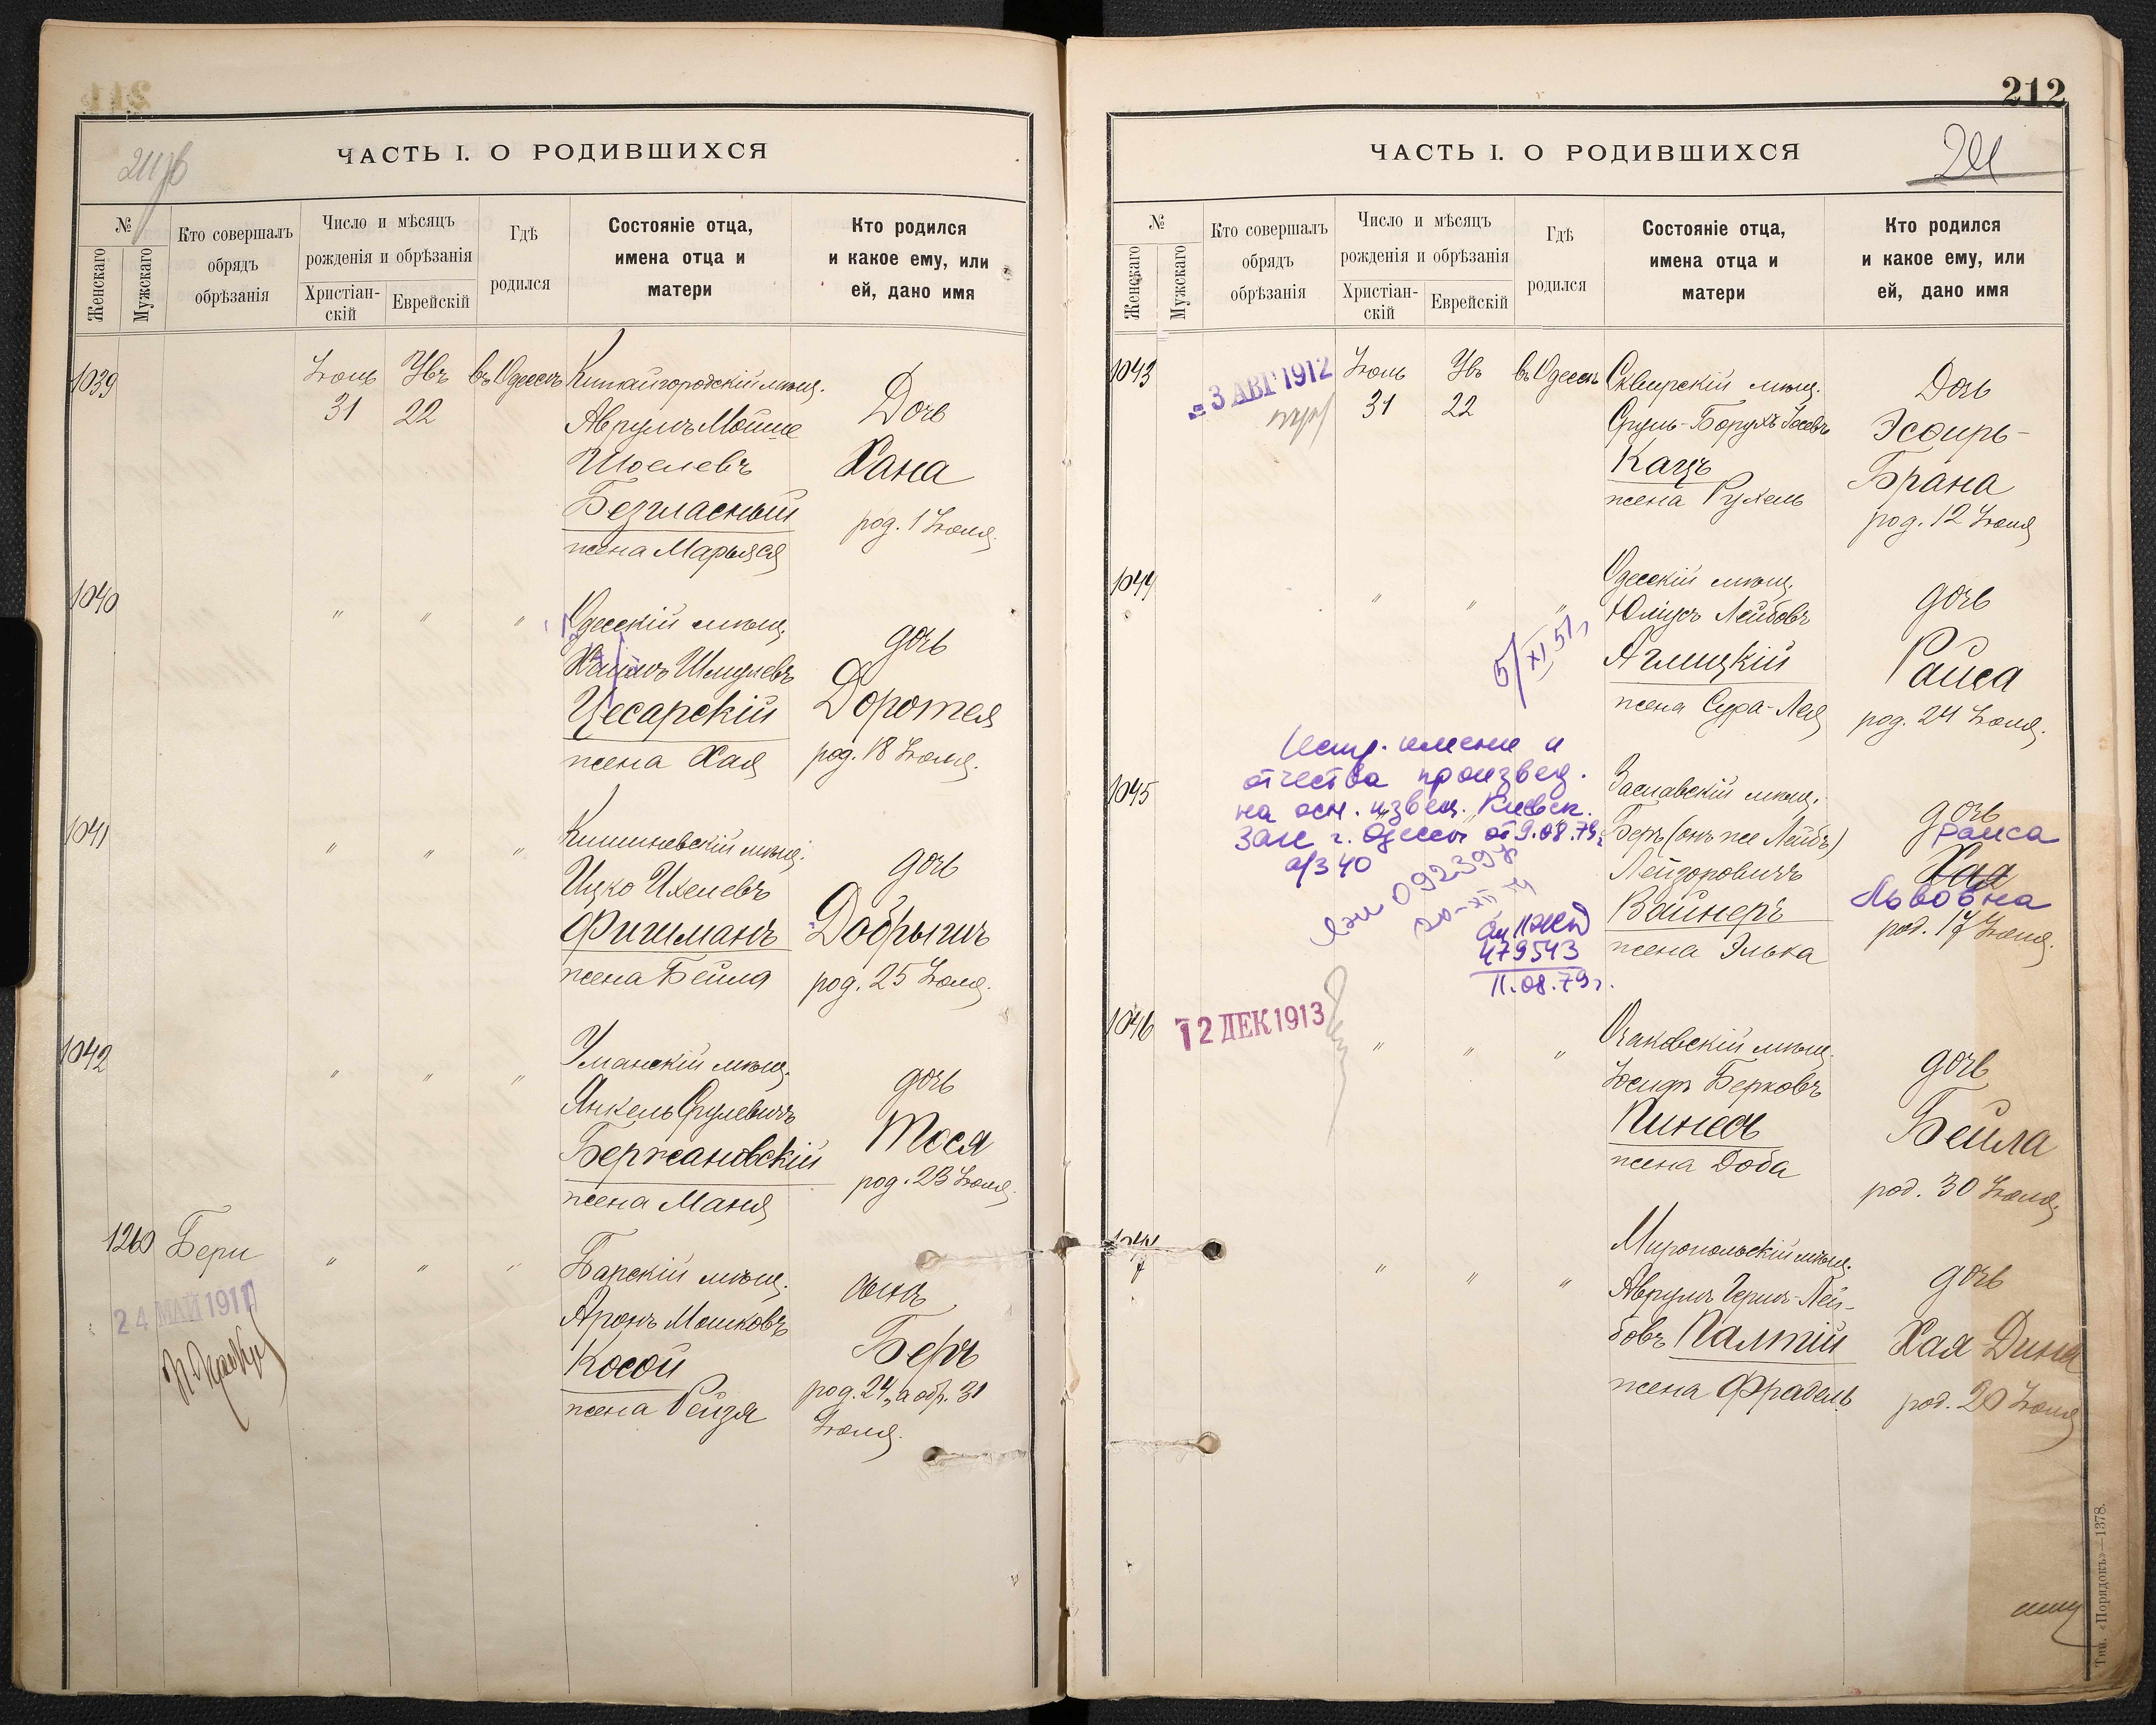 ЧАСТЬ I. О РОДИВШИХСЯ
№
Женскаго
Мужскаго
Кто совершалъ
обрядъ
обрѣзанія
Число и мѣсяцъ
рожденія и обрѣзанія
Христіан-
скій
Еврейскій
Гдѣ
родился
Состояніе отца,
имена отца и
матери
Кто родился
и какое ему, или
ей, дано имя
1039
Іюль
31
22
въ Одессѣ
Китайгородскій мѣщ.
Аврумъ Мойше
Шоелевъ
Безгласный
жена Марьяся
Дочь
Хана
род. 1 Іюля.
1040
" " "
Одесскій мѣщ.
Хаимъ Шмулевъ
Цесарскій
жена Хая
дочь
Доротея
род. 18 Іюля.
1041
" " "
Кишиневскій мѣщ.
Ицко Ихелевъ
Фишманъ
жена Бейла
дочь
Добрышъ
род. 25 Іюля.
1042
" " "
Уманскій мѣщ.
Янкель Срулевичъ
Бержановскій
жена Маня
дочь
Тося
род. 23 Іюля.
1260
24 МАЙ 1911
" " "
Барскій мѣщ.
Аронъ Мошковъ
Косой
жена Рейзя
сынъ
Беръ
род. 24, а обр. 31
Іюля.
212
211
ЧАСТЬ I. О РОДИВШИХСЯ
№
Женскаго
Мужскаго
Кто совершалъ
обрядъ
обрѣзанія
Число и мѣсяцъ
рожденія и обрѣзанія
Христіан-
скій
Еврейскій
Гдѣ
родился
Состояніе отца,
имена отца и
матери
Кто родился
и какое ему, или
ей, дано имя
1043
3 АВГ 1912
Іюль
31
22
въ Одессѣ
Сквирскій мѣщ.
Сруль-Борухъ Іосевъ
Кацъ
жена Рухель
Дочь
Эсѳирь-
Брана
род. 12 Іюля
1044
" " "
5/XI 51 г
Одесскій мѣщ.
Юліусъ Лейбовъ
Аглицкій
жена Сура-Лея
дочь
Раиса
род. 24 Іюля.
1045
Испр. имени и
отчества произвед.
на осн. извещ. Киевск.
Загс г. Одессы от 9.08.79г
а/з 40
479543
11.08.79г.
Заславскій мѣщ.
Беръ (онъ же Лейбъ)
Лейзоровичъ
Вайнеръ
жена Элька
дочь
Раиса
Хая
Львовна
род. 17 Іюля.
1046
12 ДЕК 1913
" " "
Очаковскій мѣщ.
Іосифъ Берковъ
Пинесъ
жена Доба
дочь
Бейла
род. 30 Іюля.
" " "
Миропольскій мѣщ.
Аврумъ Герш-Лей-
бовъ Палтій
жена Фрадель
дочь
Хая Дина
род. 20 Іюля
Тип. «Порядокъ»—1378.